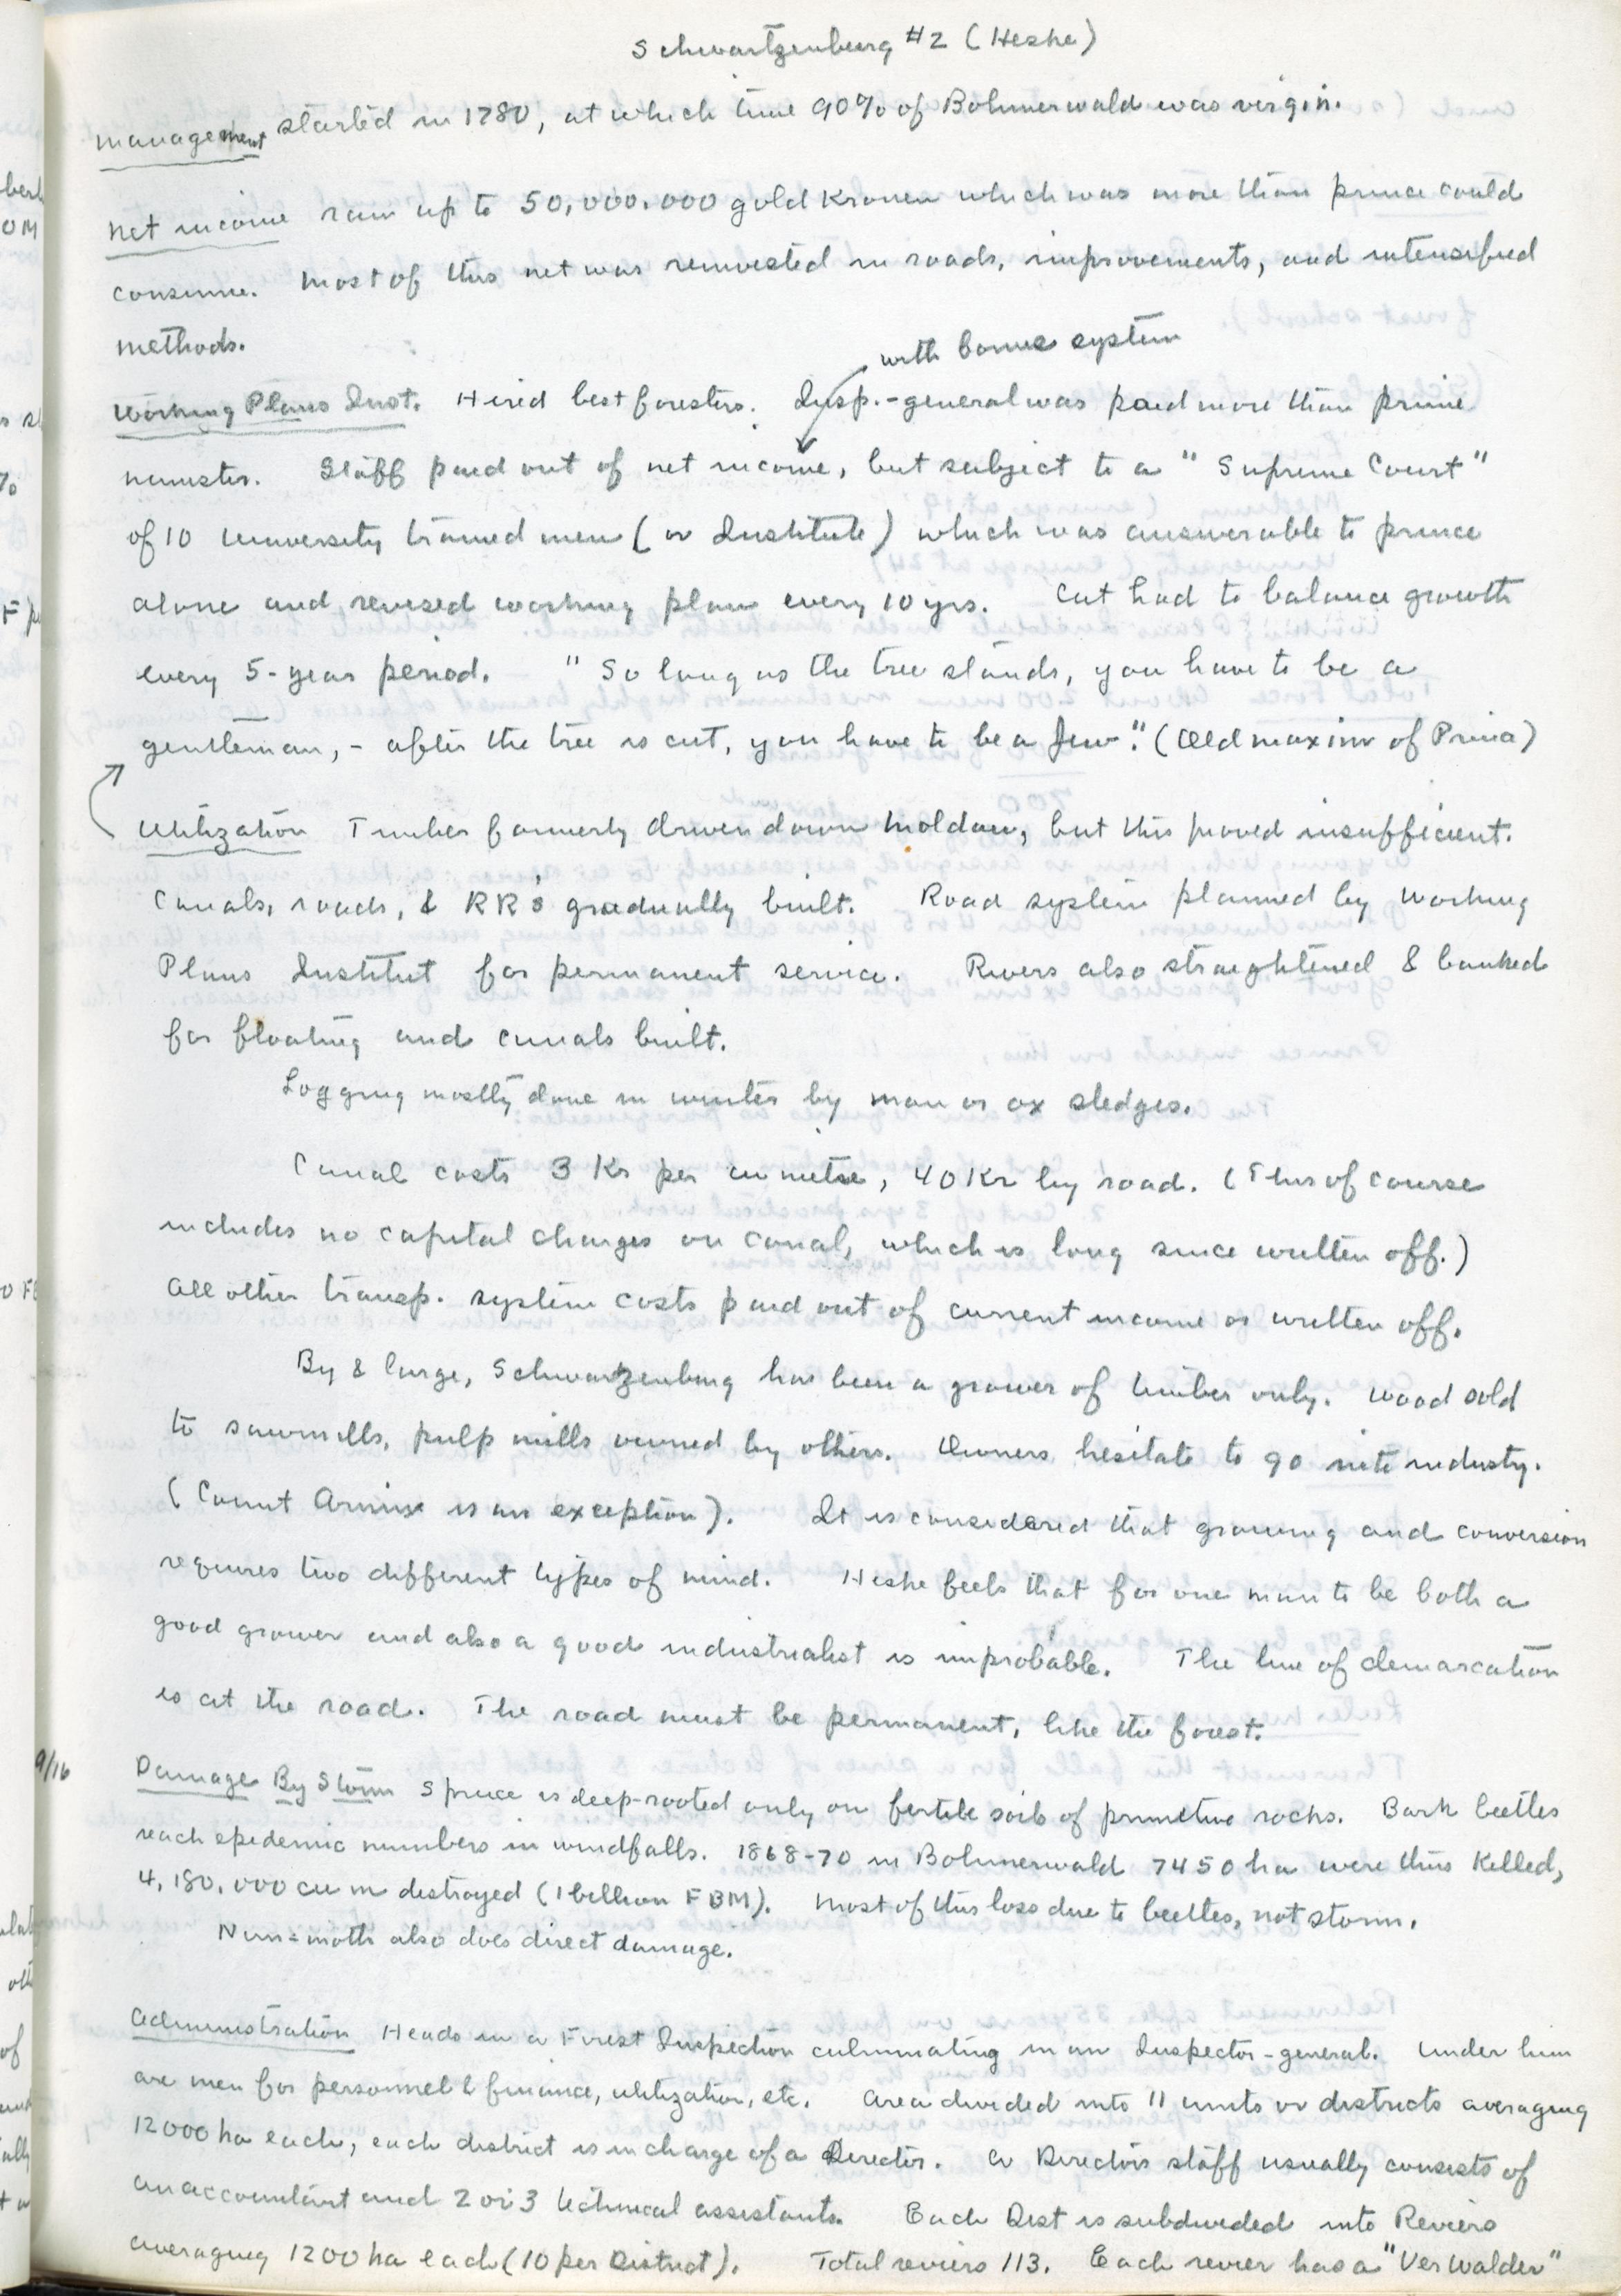 Schwartzenburg #2 (Heske)
Management started in 1780, at which time 90% of Bohmerwald was virgin.
Net income ran up to 50,000,000 gold Kronen which was more than prince could
consume. Most of this net was reinvested in roads, improvements, and intensified
methods.
with bonus system
Working Plans Inst. Hired best foresters. Insp.-general was paid more than prime
minister. Staff paid out of net income, but subject to a "Supreme Court"
of 10 university trained men (or Institute) which was answerable to prince
alone and revised working plans every 10 yrs. Cut had to balance growth
every 5-year period. "So long as the tree stands, you have to be a
gentleman, - after the tree is cut, you have to be a Jew". (Old maxim of Prince)
Utilization Timber formerly driven down Moldau, but this proved insufficient.
Canals, roads, & RR's gradually built. Road system planned by Working
Plans Institut for permanent service. Rivers also straightened & banked
for floating and canals built.
Logging mostly done in winter by man or ox sledges.
Canal costs 3 Kr per cu metre, 40 Kr by road. (This of course
includes no capital charges on canal, which is long since written off.)
All other transp. system costs paid out of current income or written off.
By & large, Schwartzenburg has been a grower of timber only. Wood sold
to sawmills, pulp mills owned by others. Owners hesitate to go into industry.
(Count Arnim is an exception). It is considered that growing and conversion
requires two different types of mind. Heske feels that for one man to be both a
good grower and also a good industrialist is improbable. The line of demarcation
is at the road. The road must be permanent, like the forest.
9/16
Damage By Storm Spruce is deep-rooted only on fertile soils of primitive rocks. Bark beetles
reach epidemic numbers in windfalls. 1868-70 in Bohmerwald 7450 ha were thus killed,
4,180,000 cu m destroyed (1 billion FBM). Most of this loss due to beetles, not storm.
Nun-moth also does direct damage.
Administration Heads in a Forest Inspection culminating in an Inspector-general. Under him
are men for personnel & finance, utilization, etc. Area divided into 11 units or districts averaging
12000 ha each, each district is in charge of a Director. A Directors staff usually consists of
an accountant and 2 or 3 technical assistants. Each Dist is subdivided into Reviers
averaging 1200 ha each (10 per District). Total reviers 113. Each revier has a "Verwalder"